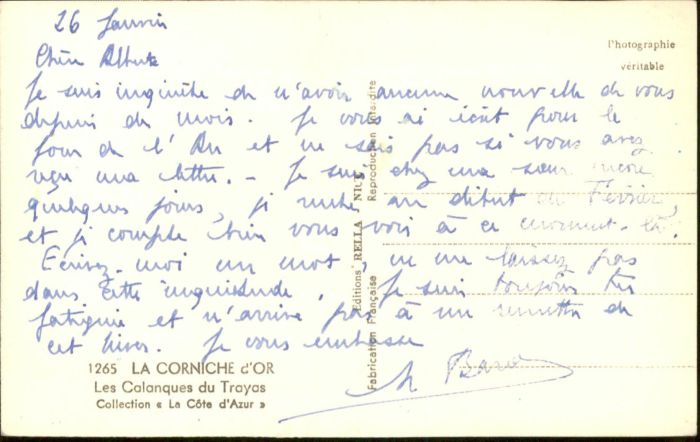 26 Janvier
Chère Alberte
Je suis inquiète de n'avoir aucune nouvelle de vous
depuis des mois. Je vous ai écrit pour le
Jour de l'An et ne sais pas si vous avez
reçu ma lettre. - Je suis chez ma sœur encore
quelques jours, je rentre au début de Février,
et je compte bien vous voir à ce moment-là.
Ecrivez-moi un mot, ne me laissez pas
dans cette inquiétude. Je suis toujours très
fatiguée et n'arrive pas à me remettre de
cet hiver. Je vous embrasse
Photographie
véritable
Editions RELLA, NICE
Reproduction Interdite
Fabrication Française
1265 LA CORNICHE d'OR
Les Calanques du Trayas
Collection « La Côte d'Azur »